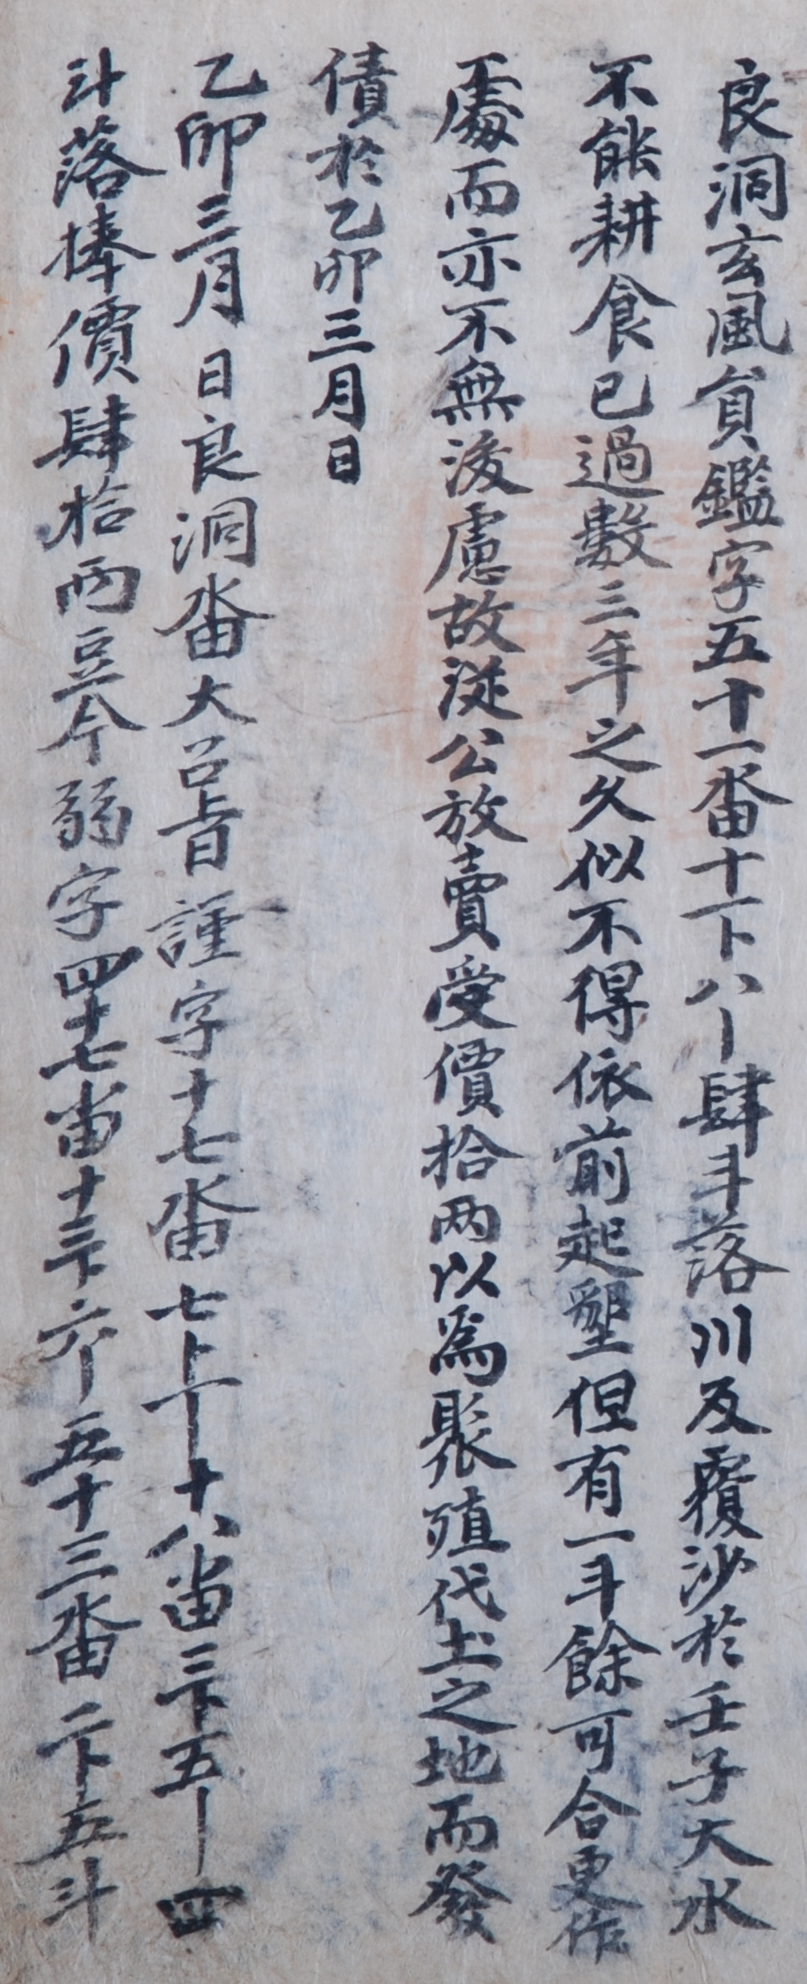 良洞玄風負鑑字五十一畓十一卜八丨肆斗落川及覆沙於壬子大水
不能耕食已過數三年之久似不得依前起墾但有一斗餘可合更作
處而亦不無後慮故從公放賣受價拾兩以爲聚殖代土之地而發
債於乙卯三月日
乙卯三月 日良洞畓大召旨謹字十七畓七卜一丨十八畓三卜五丨四
斗落捧價肆拾兩豆今弱字四十七畓十三卜六丨五十三畓二卜五斗